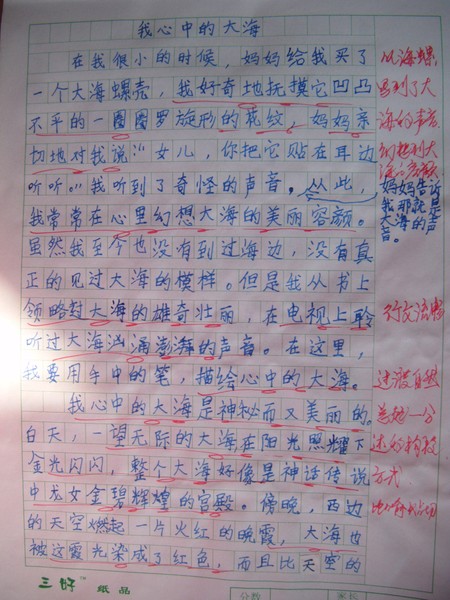 我心中的大海
在我很小的时候，妈妈给我买了
一个大海螺壳，我好奇地抚摸它凹凸
不平的一圈圈罗旋形的花纹，妈妈亲
切地对我说："女儿，你把它贴在耳边
听听。"我听到了奇怪的声音。从此，
我常常在心里幻想大海的美丽容颜。
虽然我至今也没有到过海边，没有真
正的见过大海的模样。但是我从书上
领略到大海的雄奇壮丽，在电视上聆
听过大海汹涌澎湃的声音。在这里，
我要用手中的笔，描绘心中的大海。
我心中的大海是神秘而又美丽的。
白天，一望无际的大海在阳光照耀下
金光闪闪，整个大海好像是神话传说
中龙女金碧辉煌的宫殿。傍晚，西边
的天空燃起一片火红的晚霞，大海也
被这霞光染成了红色，而且比天空的
从海螺
到了大
海的声音
想到大
妈妈告诉
我那就是
大海的声
音。
行文流畅
过渡自然
总分
方式
三好 纸品
分数
家长